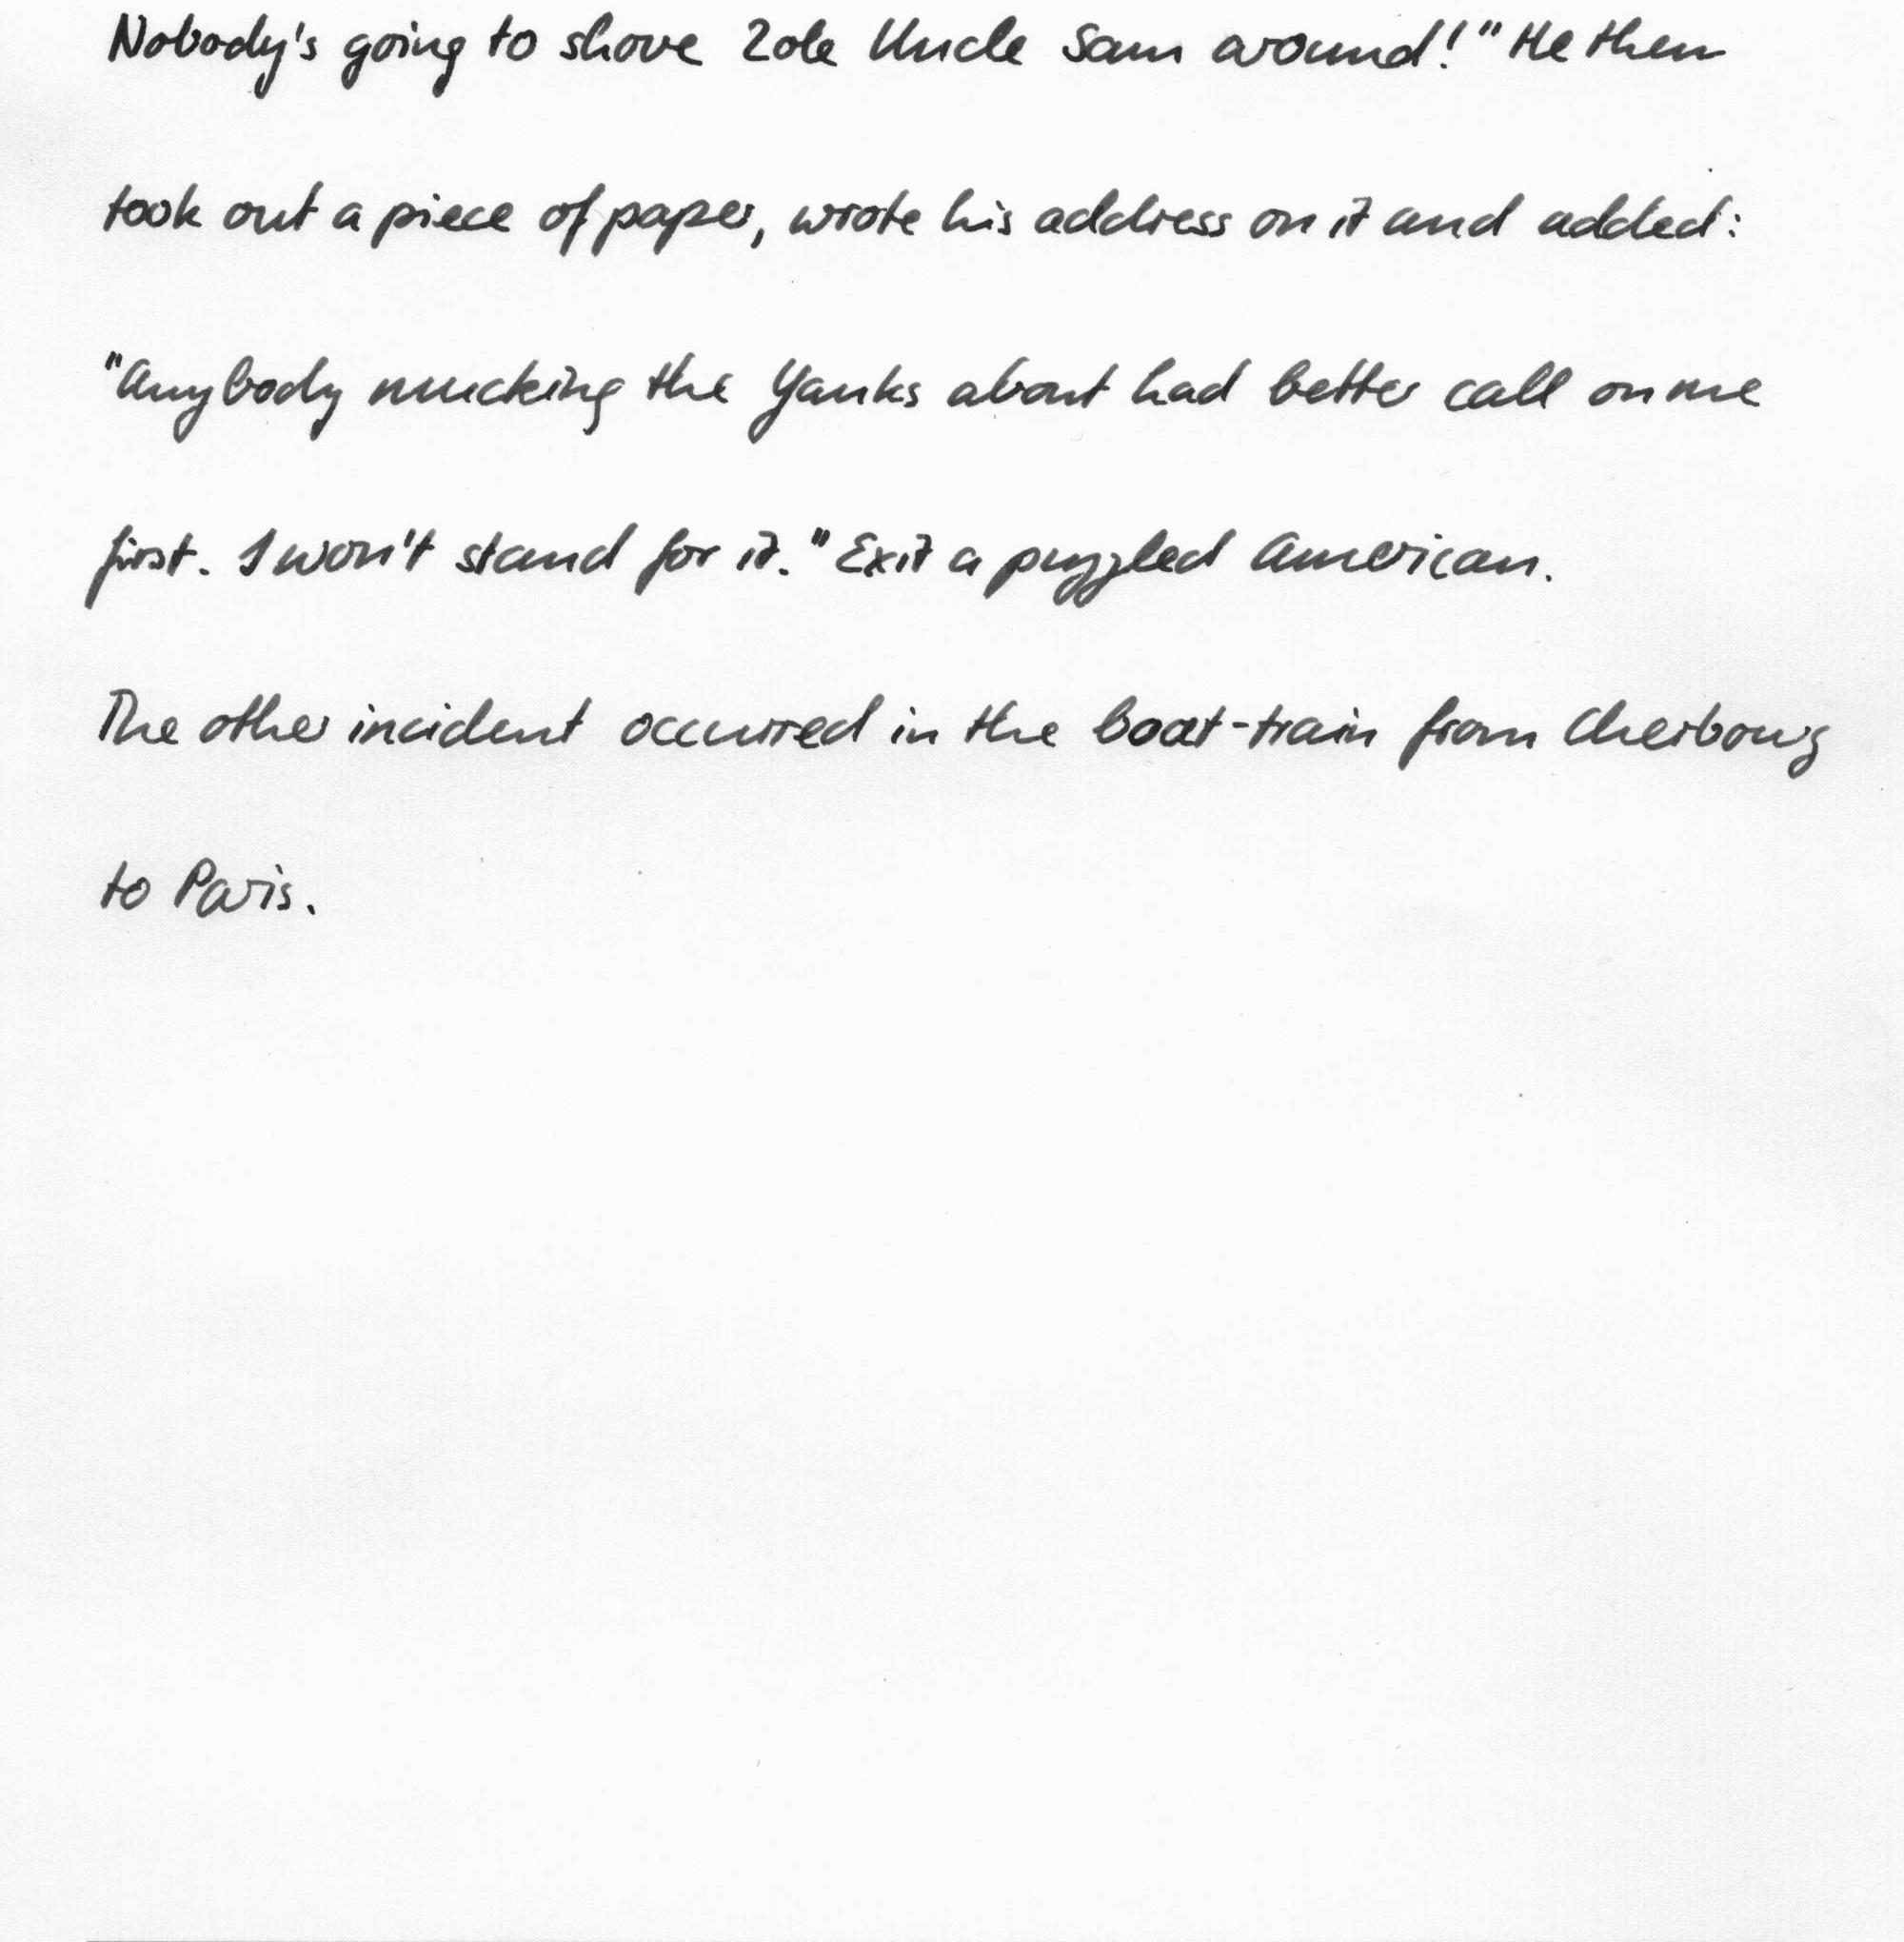 Nobody's going to shove Zole Uncle Sam around!" He then
took out a piece of paper, wrote his address on it and added:
"Anybody mucking the Yanks about had better call on me
first. I won't stand for it." Exit a puzzled American.
The other incident occurred in the boat-train from Cherbourg
to Paris.